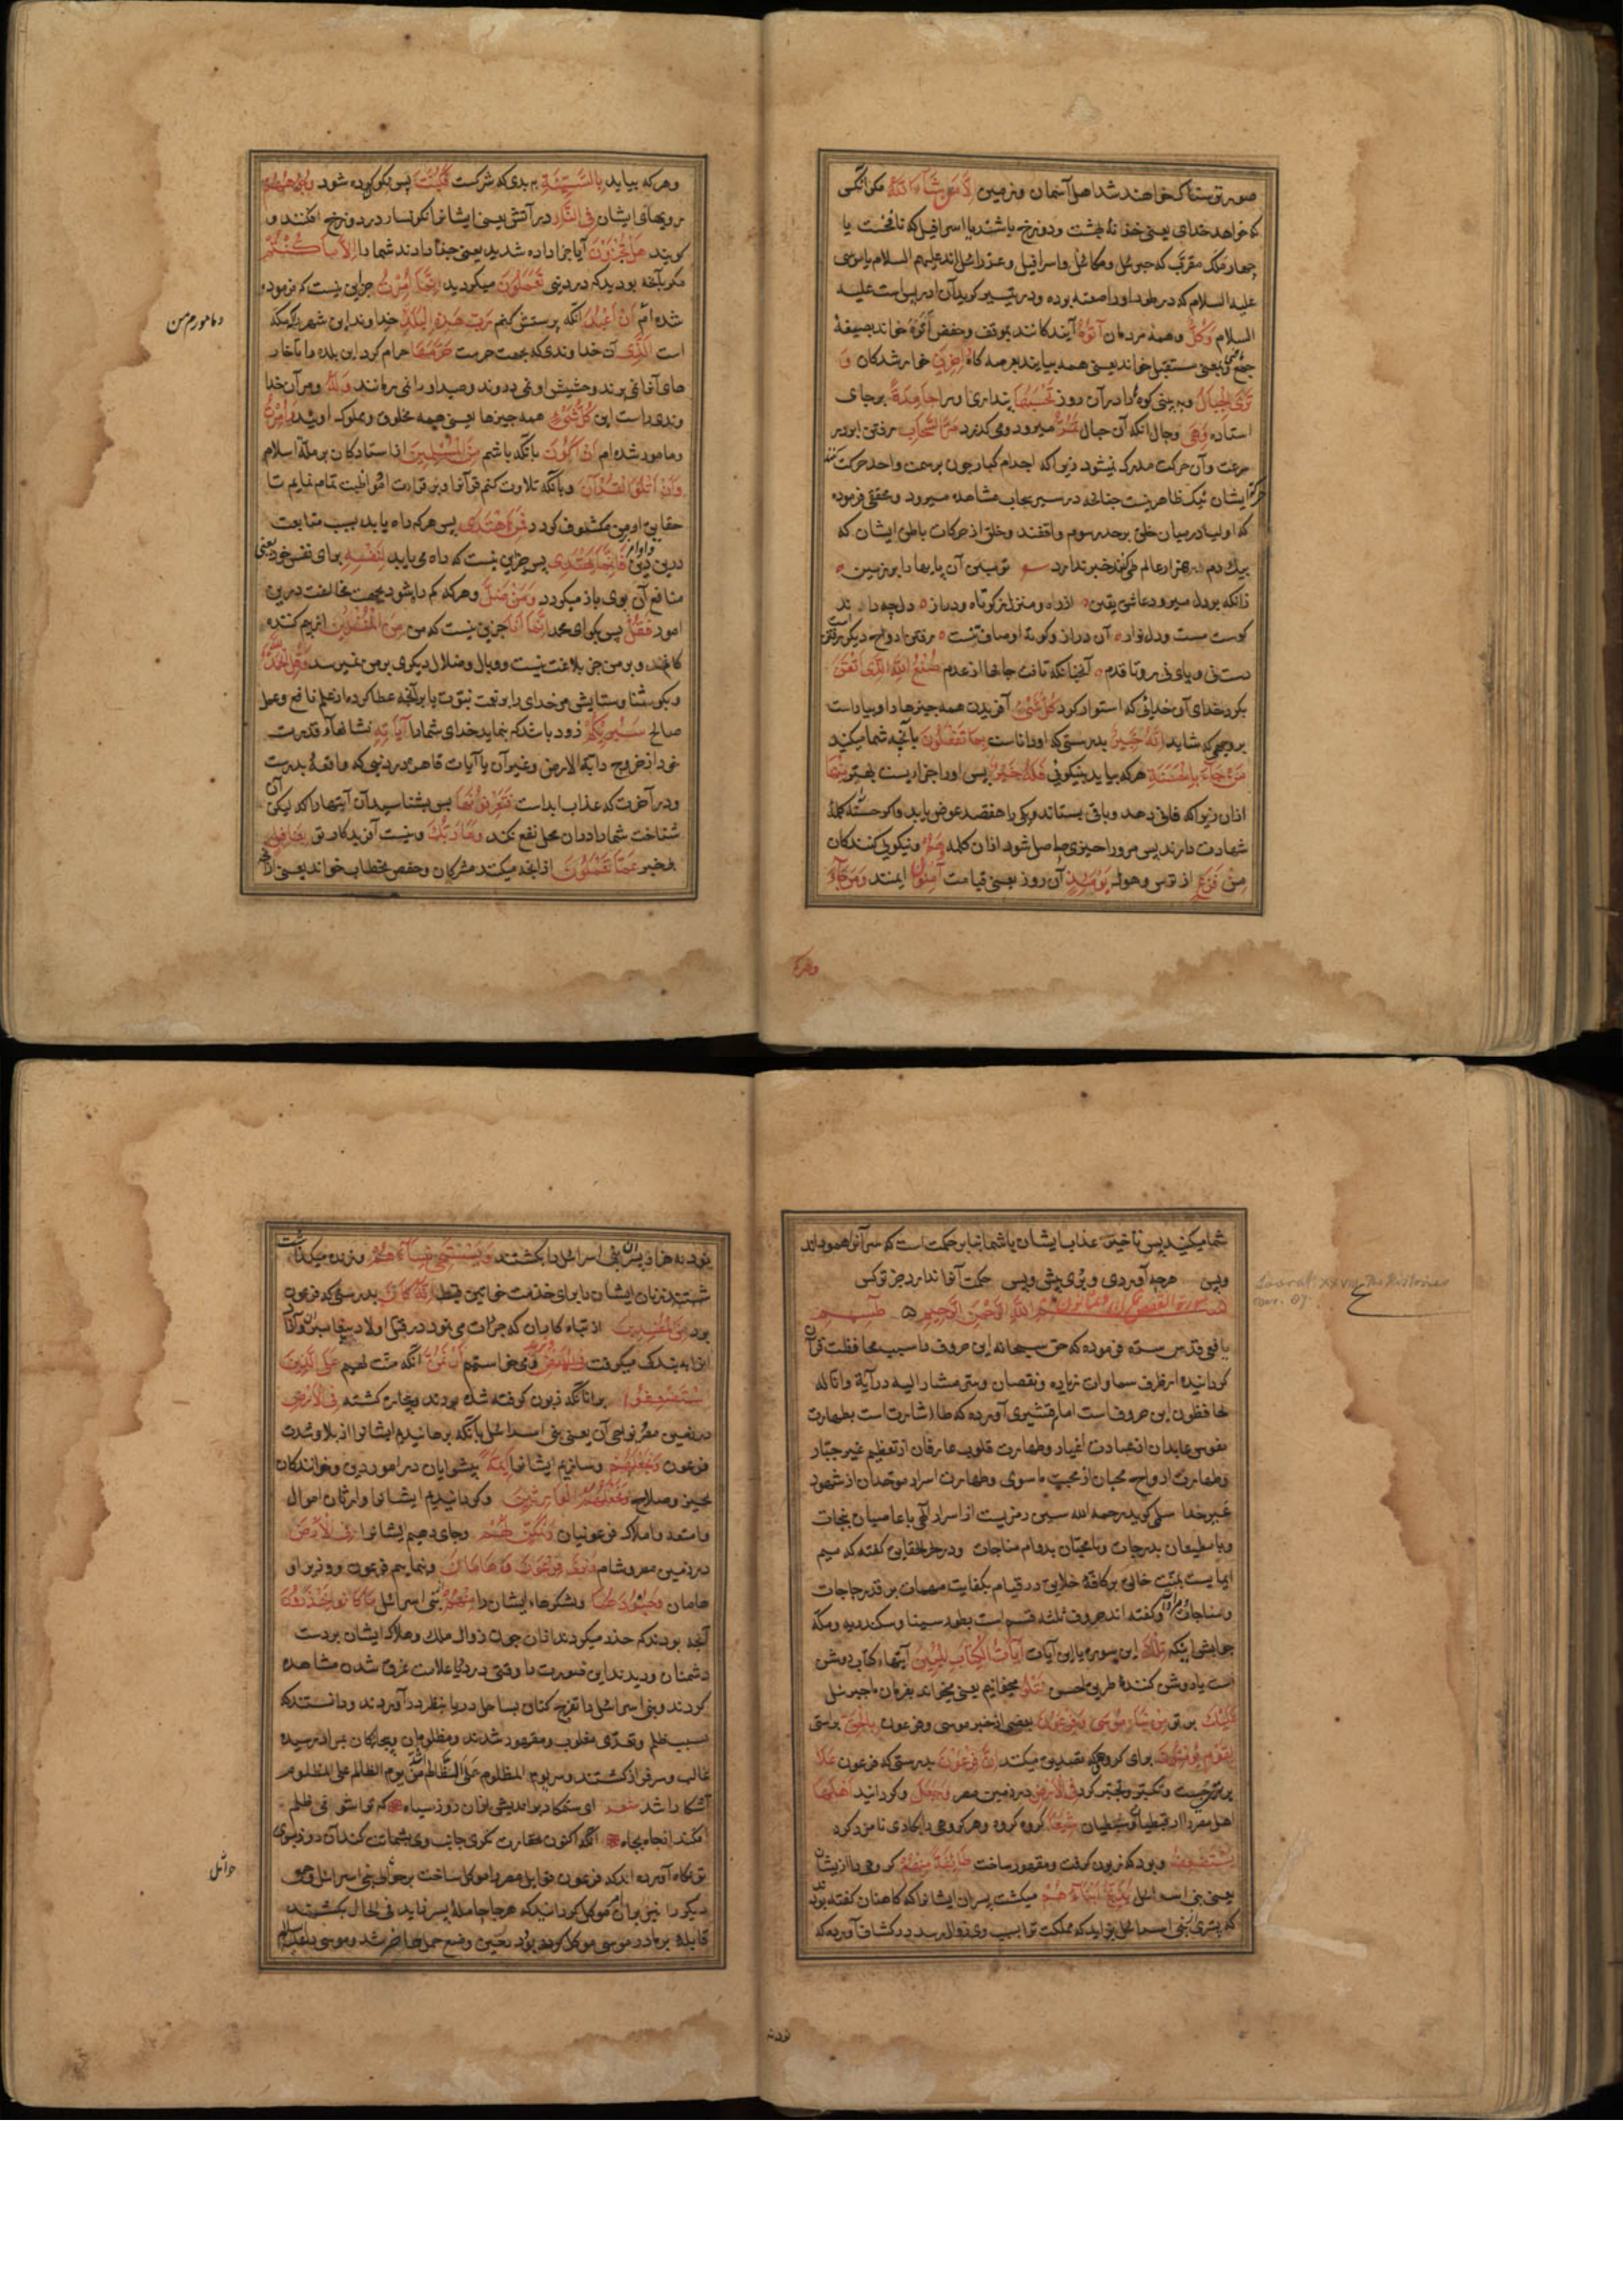 صور ترسناک خواهند شد اهل آسمان و زمین إِلَّا مَنْ شَاءَ اللَّهُ مکر آنکس
که خواهد خدای یعنی خزنهٔ بهشت و دوزخ باشند یا اسرافیل که نافخست یا
چهار ملک مقرب که جبرئیل و میکائیل و اسرافیل و عزرائیل اند علیهم السلام یا موسی
علیه السلام که در طور او را صعقه بوده و در تیسیر کوید آن ادریس است علیه
السلام وَكُلٌّ و همه مردمان أَتَوْهُ آیندکانند بموقف و حفص أَتَوْهُ خواند بصیغهٔ
جمع یعنی مستقبل خواند یعنی همه بیایند بعرصه کاه دَاخِرِينَ خوارشدکان وَ
تَرَى الْجِبَالَ و به بینی کوه‌ها را در آن روز تَحْسَبُهَا پنداری او را جَامِدَةً بر جای
استاده وَهِيَ و حال آنکه آن جبال تَمُرُّ میرود و می‌کذرد مَرَّ السَّحَابِ رفتن ابر در
سرعت و آن حرکت مدرک نیشود زیرا که اجرام کبار چون بر سمت واحد حرکت کنند
حرکة ایشان نیک ظاهر نیست چنانچه در سیر سحاب مشاهده میرود و محققی فرموده
که اولیا در میان خلق بر حد رسوم واقفند و خلق از حرکات باطن ایشان که
بیک دم هزار عالم طی کنند خبر ندارد تو مبین آن پایها را بر زمین
زانکه بر دل میرود عاشق یقین از راه و منزل ز کوتاه و دراز دل چه داند
کوست مست و دلنواز آن دراز و کوته اوصاف تنست رفتن ارواح دیکر رفتنست
دست نی و پای نی رو تا قدم آنچنانکه تاخت جانها از عدم صُنْعَ اللَّهِ الَّذِي أَتْقَنَ
بکرد خدای آن خدائی که استوار کرد كُلَّ شَيْءٍ آفریدن همه چیزها را و بیاراست
بر وجهی که شاید إِنَّهُ خَبِيرٌ بدرستی که او داناست بِمَا تَفْعَلُونَ بآنچه شما میکنید
مَنْ جَاءَ بِالْحَسَنَةِ هر که بیاید بنیکوئی فَلَهُ خَيْرٌ پس او را جزاییست بهتر مِنْهَا
از آن زیرا که فانی دهد و باقی بستاند و یکی را هفتصد عوض یابد و اکر حسنه کلمهٔ
شهادت دارند پس مرو را چیزی حاصل شود از آن کلمه وَهُمْ و نیکویی کنندکان
مِنْ فَزَعٍ از ترس و هول يَوْمَئِذٍ آن روز یعنی قیامت آمِنُونَ ایمنند وَمَنْ جَاءَ
وهرکه
و هر که بیاید بِالسَّيِّئَةِ به بدی که شرکست فَكُبَّتْ پس نکون کرده شود وُجُوهُهُمْ
رویهای ایشان فِي النَّارِ در آتش یعنی ایشانرا نکونسار در دوزخ افکنند و
کویند هَلْ تُجْزَوْنَ آیا جزا داده شدید یعنی جزا دادند شما را إِلَّا مَا كُنْتُمْ
مکر بآنچه بودید که در دنیی تَعْمَلُونَ میکردید إِنَّمَا أُمِرْتُ جز این نیست که فرموده
شده ام أَنْ أَعْبُدَ آنکه پرستش کنم رَبَّ هَذِهِ الْبَلْدَةِ خداوند این شهر را که مکه
است الَّذِي آن خداوندی که بجهت حرمت حَرَّمَهَا حرام کرد این بلده را تا خار
های آنرا نمی‌برند و حشیش او نمی‌دروند و صید او را نمی‌رمانند وَلَهُ و مر آن خدا
وندی راست این كُلُّ شَيْءٍ همه چیزها یعنی همه مخلوق و مملوک اویند وَأُمِرْتُ
و مامور شده ام أَنْ أَكُونَ بآنکه باشم مِنَ الْمُسْلِمِينَ از استادکان بر ملة اسلام
وَأَنْ أَتْلُوَ الْقُرْآنَ و بآنکه تلاوت کنم قرآنرا و بر قراءت او مواظبت تمام نمایم تا
حقایق او بر من مکشوف کردد فَمَنِ اهْتَدَى پس هر که راه یابد بسبب متابعت
درین دین فَإِنَّمَا يَهْتَدِي پس جز این نیست که راه می‌یابد لِنَفْسِهِ برای نفس خود یعنی
منافع آن بوی باز میکردد وَمَنْ ضَلَّ و هر که کم راه شود بجهت مخالفت درین
امور فَقُلْ پس بکو ای محمد إِنَّمَا أَنَا جز این نیست که من مِنَ الْمُنْذِرِينَ از بیم کننده
کانم و بر من جز بلاغت نیست و وبال و ضلال دیکری بر من نمیرسد وَقُلِ الْحَمْدُ لِلَّهِ
و بکو ثنا و ستایش مر خدای را بر نعت نبوت یا بر آنچه عطا کرده از علم نافع و عمل
صالح سَيُرِيكُمْ زود باشد که بنماید خدای شما را آيَاتِهِ نشانهاء قدرت
خود از خروج دابة الارض و غیر آن یا آیات قاهره در دنیی که واقعهٔ بدرست
و در آخرت که عذاب ابداست فَتَعْرِفُونَهَا پس بشناسید آن آیتها را که لیکن آن
شناخت شما را در آن محل نفع نکند وَمَا رَبُّكَ و نیست آفریدکار تو بِغَافِلٍ
بیخبر عَمَّا تَعْمَلُونَ از آنچه میکنند مشرکان و حفص بخطاب خواند یعنی از آنچه
و مامورم من
شما میکنید پس تاخیر عذاب ایشان یا شما بنا بر حکمت است که سر آنرا همو داند
و بس هر چه آوردی و بری پیش و پس حکمت آنرا نداند جز تو کس
سورة القصص بِسْمِ اللَّهِ الرَّحْمَنِ الرَّحِيمِ طسم
Soorat XXVIII The Histories
یافعی قدس سره فرموده که حق سبحانه این حروف را سبب محافظت قرآن
کردانیده از تطرف سماوات زیاده و نقصان و سر مشار الیه در آیة وانا له
لحافظون این حروف است امام قشیری آورده که طا اشارت است بطهارت
نفوس عابدان از عبادت اغیار و طهارت قلوب عارفان از تعظیم غیر جبار
و طهارت ارواح محبان از محبت ما سوی و طهارت اسرار موحدان از شهود
غیر خدا سلمی کوید رحمه الله سین رمزیست از اسرار الهی با عاصیان بنجات
و با مطیعان بدرجات و با محبان بدوام مناجات و در بحر الحقایق کفته که میم
ایماییست بمنت خالق بر کافهٔ خلایق در قیام بکفایت مهمات بر قدر حاجات
و مناجات و کفته اند حروف ثلثه قسم است بطور سینا و سکندریه و مکه
جوابش اینکه تِلْكَ این سوره یا این آیات آيَاتُ الْكِتَابِ الْمُبِينِ آیتهاء کتاب روشن
است یا روشن کنندهٔ طریق احسن نَتْلُو میخوانیم یعنی میخواند بفرمان ما جبرئیل
عَلَيْكَ بر تو مِنْ نَبَإِ مُوسَى وَفِرْعَوْنَ بعضی از خبر موسی و فرعون بِالْحَقِّ براستی
لِقَوْمٍ يُؤْمِنُونَ برای کروهی که تصدیق میکنند إِنَّ فِرْعَوْنَ بدرستی که فرعون عَلَا
برتری جست و تکبر و تجبر کرد فِي الْأَرْضِ در زمین مصر وَجَعَلَ و کردانید أَهْلَهَا
اهل مصر را از قبطیان و سبطیان شِيَعًا کروه کروه و هر کروهی را بکاری نامزد کرد
يَسْتَضْعِفُ و بود که زبون کرفت و مقهور ساخت طَائِفَةً مِنْهُمْ کروهی را از ایشان
یعنی بنی اسرائیل يُذَبِّحُ أَبْنَاءَهُمْ میکشت پسران ایشانرا که کاهنان کفته بودند
که پسری از بنی اسرائیل بزاید که مملکت ترا بسبب وی زوال رسد در کشاف آورده که
نود هزار پسران بنی اسرائیل را بکشتند وَيَسْتَحْيِي نِسَاءَهُمْ و زنده میکذاشت
دختران ایشان را برای خدمت خواتین قبط إِنَّهُ كَانَ بدرستی که فرعون
بود مِنَ الْمُفْسِدِينَ از تباه کاران که جرأت می‌نمود در قتل اولاد پیغامبران و آزاد
انرا به بندکی میکرفت وَنُرِيدُ و می‌خواستیم أَنْ نَمُنَّ آنکه منت نهیم عَلَى الَّذِينَ
اسْتُضْعِفُوا بر آنانکه زبون کرفته شده بودند و بیچاره کشته فِي الْأَرْضِ
در زمین مصر و نواحی آن یعنی بنی اسرائیل بآنکه برهانیدم ایشانرا از بلا و شدت
فرعون وَنَجْعَلَهُمْ و سازیم ایشانرا أَئِمَّةً پیشوایان در امور دین و خوانندکان
بخیر و صلاح وَنَجْعَلَهُمُ الْوَارِثِينَ و کردانیدیم ایشانرا وارثان اموال
و امتعه و املاک فرعونیان وَنُمَكِّنَ لَهُمْ و جای دهیم ایشانرا فِي الْأَرْضِ
در زمین مصر و شام وَنُرِيَ فِرْعَوْنَ وَهَامَانَ و بنماییم فرعون و وزیر او
هامان وَجُنُودَهُمَا و لشکرهاء ایشان را مِنْهُمْ از بنی اسرائیل مَا كَانُوا يَحْذَرُونَ
آنچه بودند که حذر میکردند از آن چون زوال ملک و هلاک ایشان بر دست
دشمنان و دیدند این صورت را وقتی در دریا علامت غرق شدن مشاهده
کردند و بنی اسرائیل را تفرج کنان بساحل دریا بنظر در آوردند و دانستند که
بسبب ظلم و تعدی مغلوب و مقهور شدند و مظلومان و بیچارکان بمراد رسیده
غالب و سرفراز کشتند و سر یوم المظلوم علی الظالم اشد من یوم الظالم علی المظلوم
آشکارا شد شعر ای ستمکار براندیش از آن روز سیاه که ترا شومی ظلم
افکند از جاه بچاه آنکه اکنون بحقارت نکری جانب وی بشماتت کند آن روز بسوی
تو نکاه آورده اند که فرعون قوابل مصر را موکل ساخت بر حوامل بنی اسرائیل و جمعی
دیکر را نیز بر آن موکل کردانید که هر جا حاملهٔ پسر زاید فی الحال بکشتند
قابله بر مادر موسی موکل کرده بود بحین وضع حمل حاضر شد و موسی علیه السلام
حوامل
نود هزار